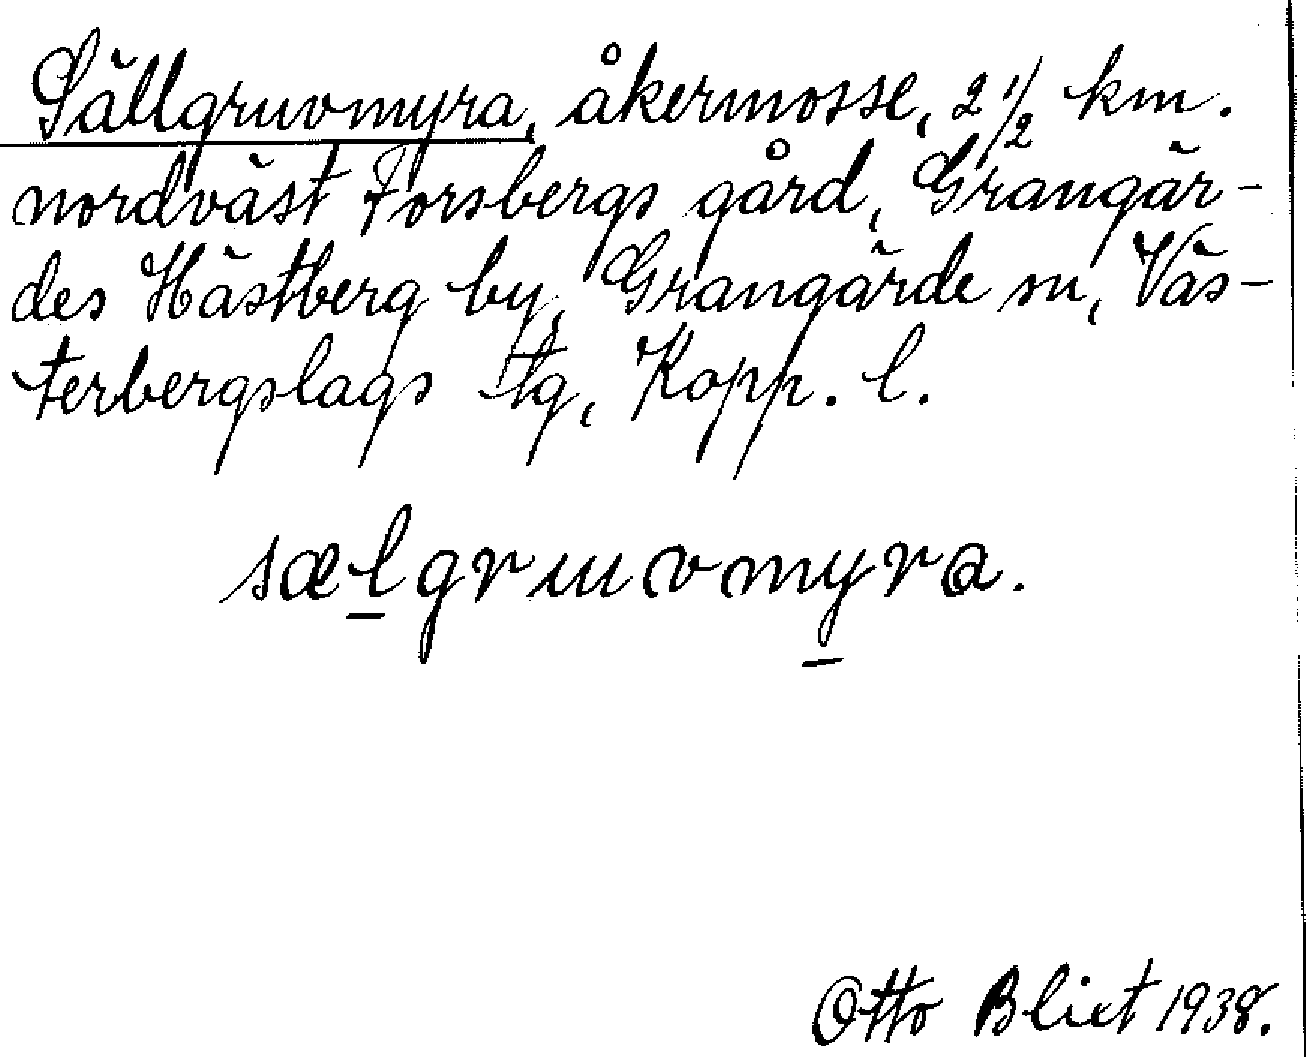 Sällgruvmyra, åkermosse, 2 1/2 km.
nordväst Forsbergs gård, Grangär-
des Hästberg by, Grangärde sn, Väs-
terbergslags tg, Kopp. l.
sælgruvmyra.
Otto Blixt 1938.